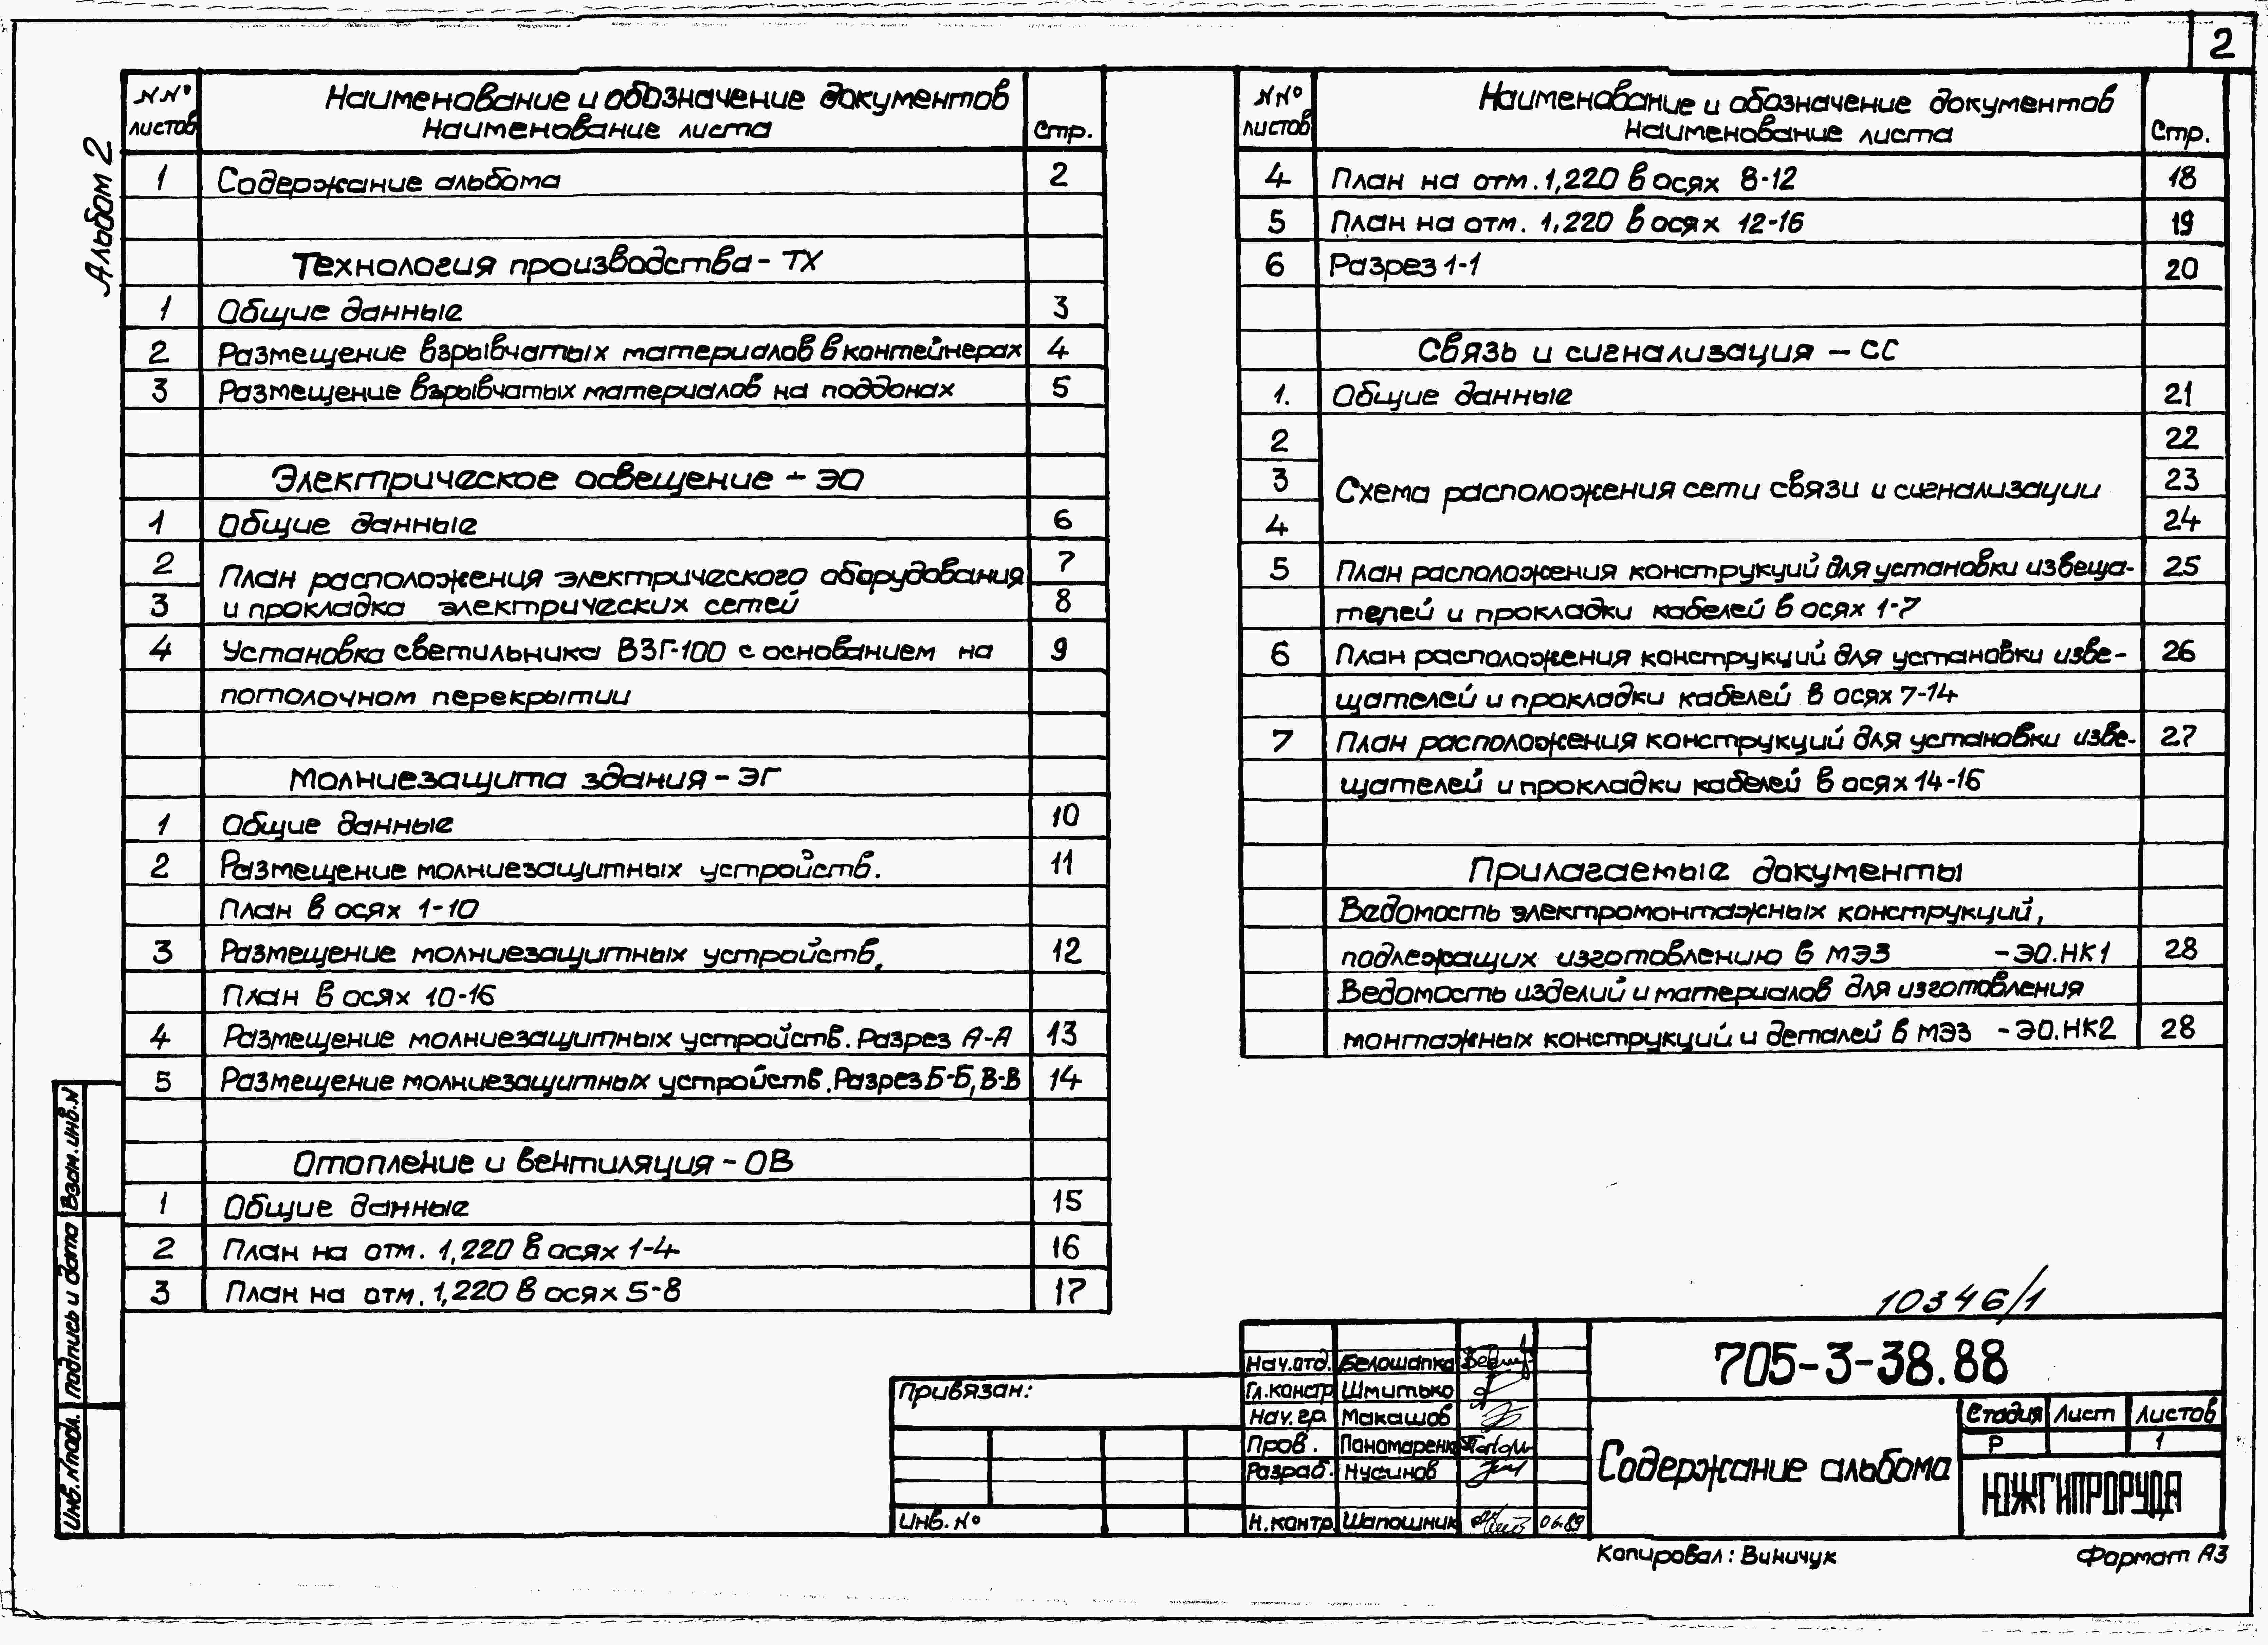 2
Альбом 2
NNº листов
Наименование и обозначение документов
Наименование листа
Стр.
1 Содержание альбома 2
Технология производства - ТХ
1 Общие данные 3
2 Размещение взрывчатых материалов в контейнерах 4
3 Размещение взрывчатых материалов на поддонах 5
Электрическое освещение - ЭО
1 Общие данные 6
2 План расположения электрического оборудования 7
3 и прокладка электрических сетей 8
4 Установка светильника ВЗГ-100 с основанием на 9
потолочном перекрытии
Молниезащита здания - ЭГ
1 Общие данные 10
2 Размещение молниезащитных устройств. 11
План в осях 1-10
3 Размещение молниезащитных устройств. 12
План в осях 10-16
4 Размещение молниезащитных устройств. Разрез А-А 13
5 Размещение молниезащитных устройств. Разрез Б-Б, В-В 14
Отопление и вентиляция - ОВ
1 Общие данные 15
2 План на отм. 1,220 в осях 1-4 16
3 План на отм. 1,220 в осях 5-8 17
NNº листов
Наименование и обозначение документов
Наименование листа
Стр.
4 План на отм. 1,220 в осях 8-12 18
5 План на отм. 1,220 в осях 12-16 19
6 Разрез 1-1 20
Связь и сигнализация - СС
1. Общие данные 21
2 22
3 Схема расположения сети связи и сигнализации 23
4 24
5 План расположения конструкций для установки извеща- 25
телей и прокладки кабелей в осях 1-7
6 План расположения конструкций для установки изве- 26
щателей и прокладки кабелей в осях 7-14
7 План расположения конструкций для установки изве- 27
щателей и прокладки кабелей в осях 14-16
Прилагаемые документы
Ведомость электромонтажных конструкций,
подлежащих изготовлению в МЭЗ - ЭО.НК1 28
Ведомость изделий и материалов для изготовления
монтажных конструкций и деталей в МЭЗ - ЭО.НК2 28
Взам. инв. N
Подпись и дата
Инв. N подл.
10346/1
Привязан:
Инв. Nº
Нач. отд. Белошапка
Гл. констр Шмитько
Нач. гр. Макашов
Пров. Пономаренк
Разраб. Нусинов
Н. контр. Шапошник 06.89
705-3-38.88
Содержание альбома
Стадия Лист Листов
Р 1
ЮЖГИПРОРУДА
Копировал: Виничук
Формат А3